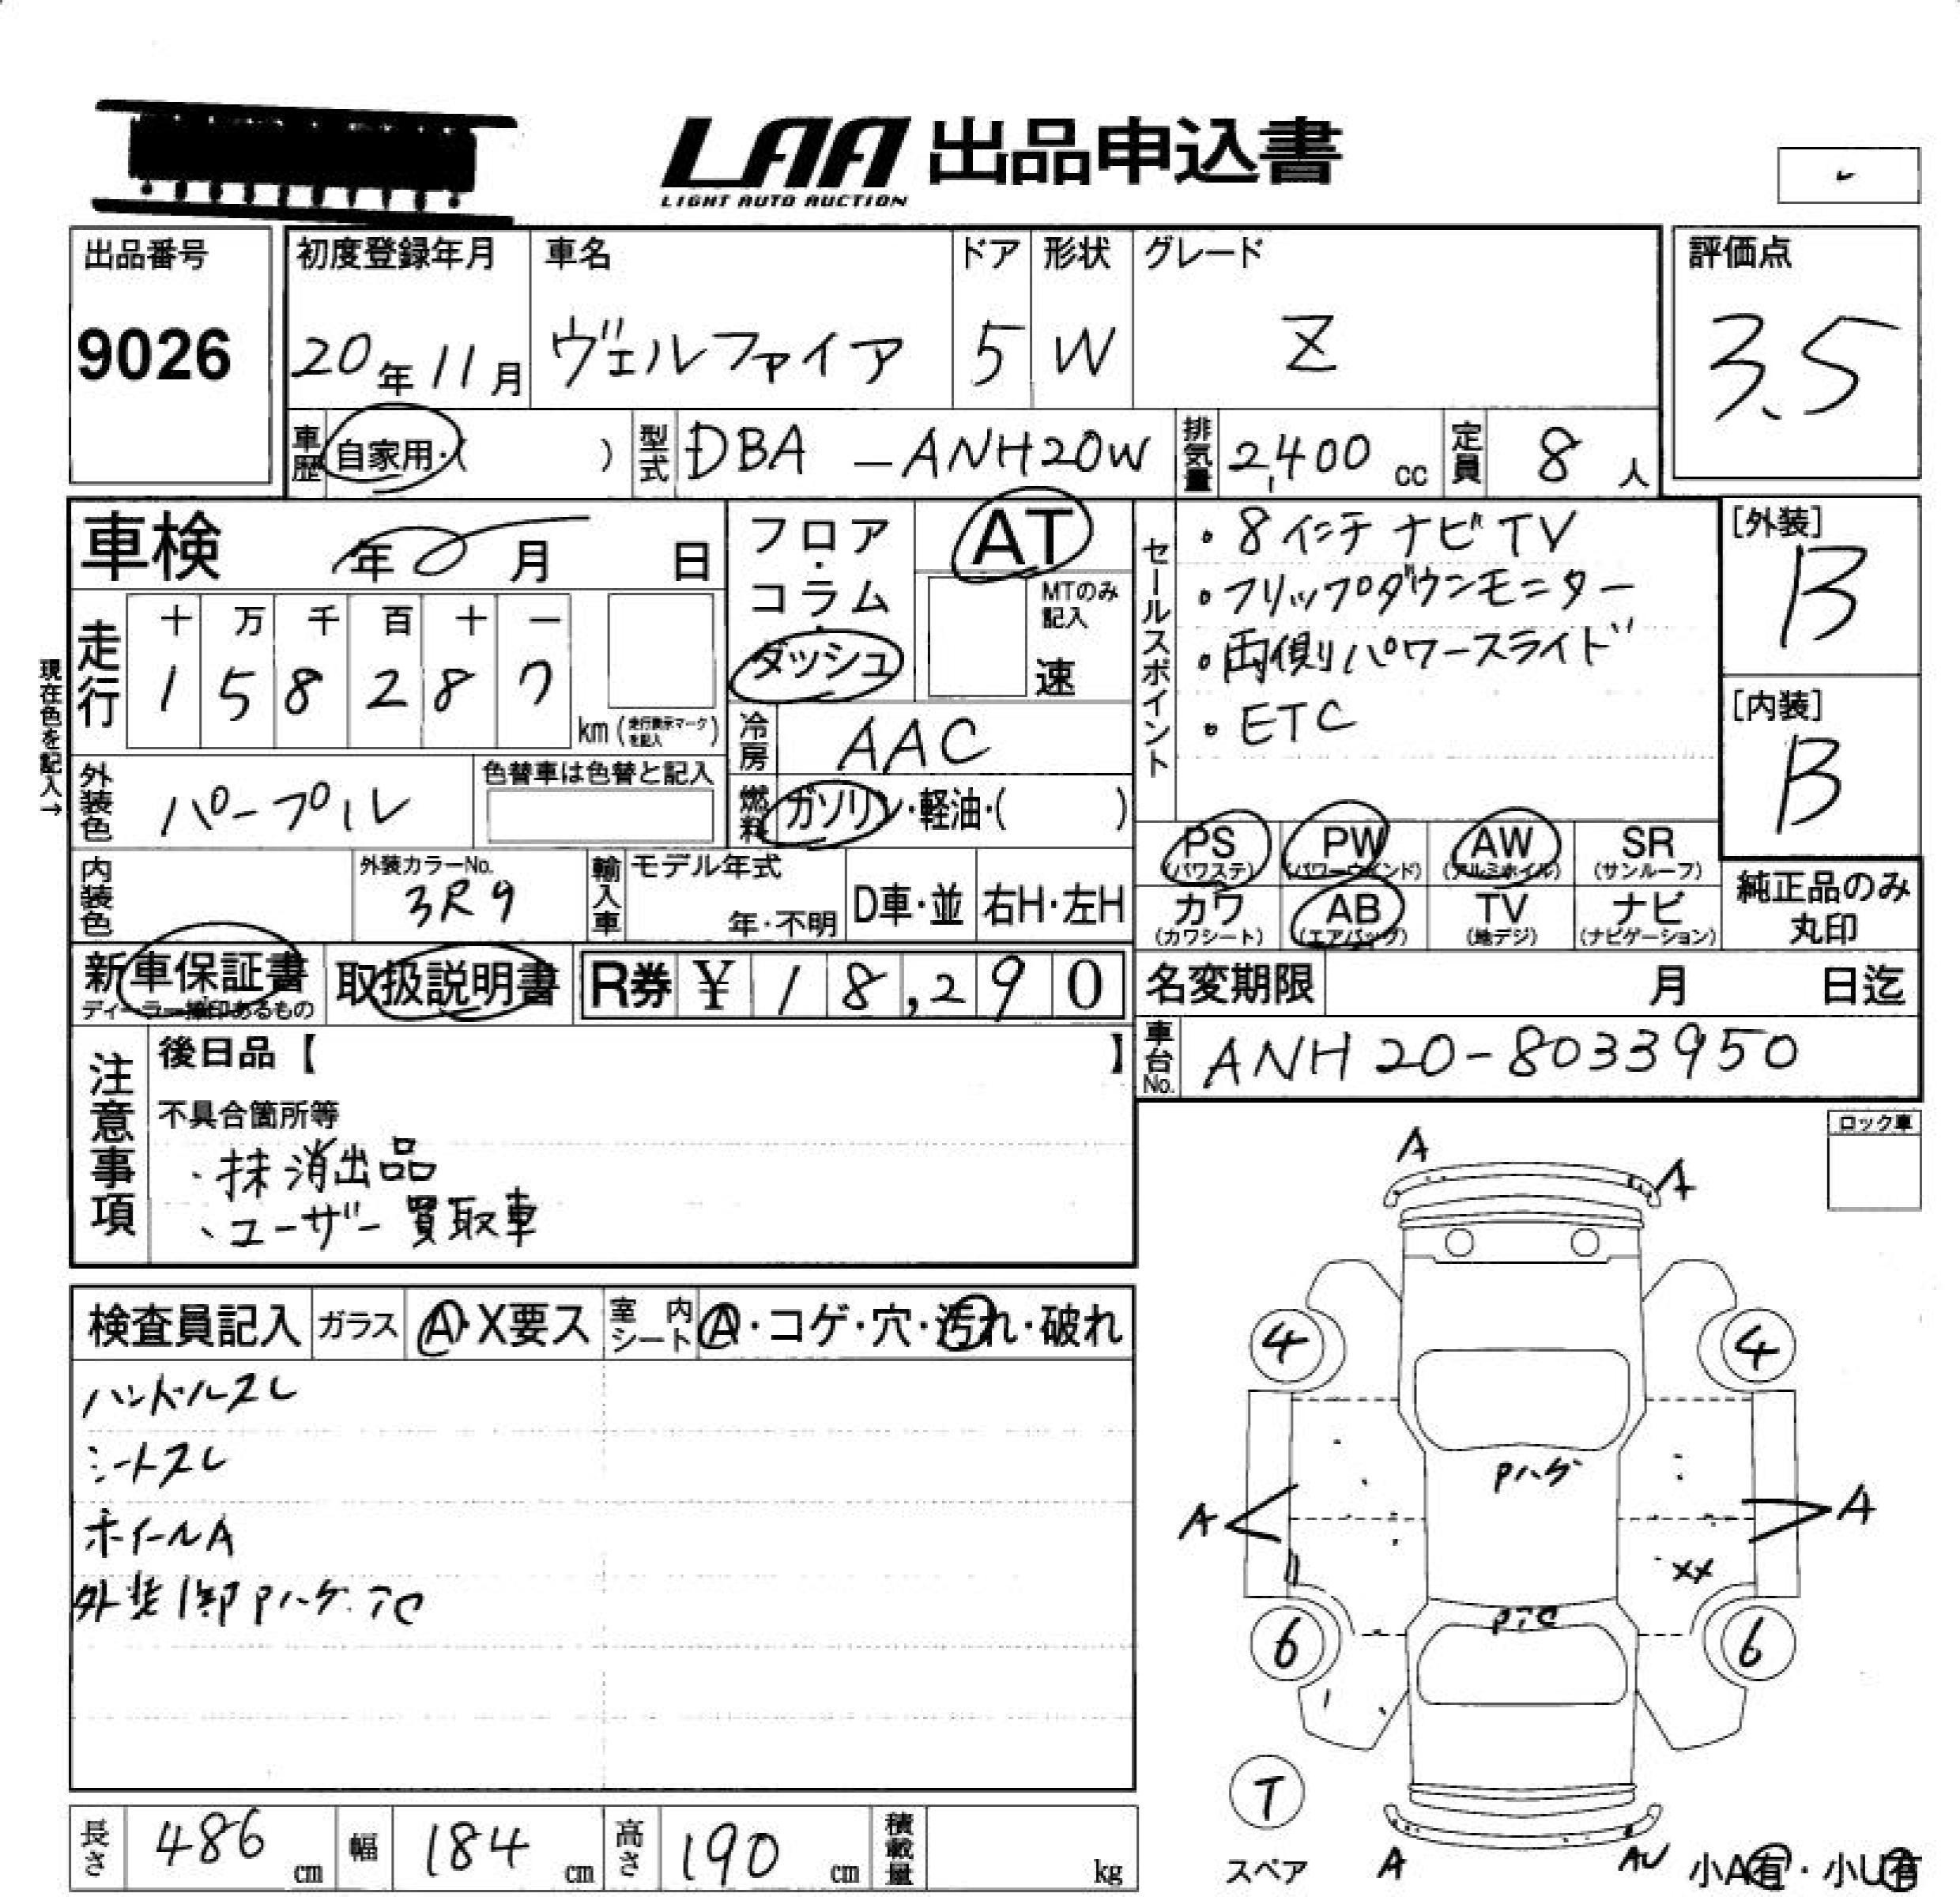 LAA 出品申込書
LIGHT AUTO AUCTION
出品番号
9026
初度登録年月
20年11月
車名
ヴェルファイア
ドア
5
形状
W
グレード
Z
評価点
3.5
車歴 自家用・( )
型式 DBA-ANH20W
排気量 2,400 cc
定員 8 人
車検 年 月 日
フロア・コラム・ダッシュ
AT
MTのみ記入
速
セールスポイント
・8インチナビTV
・フリップダウンモニター
・両側パワースライド
・ETC
[外装]
B
[内装]
B
現在色を記入→
走行
十 万 千 百 十 一
1 5 8 2 8 7
km (走行表示マークを記入)
冷房 AAC
外装色 パープル
色替車は色替と記入
燃料 ガソリン・軽油・( )
PS (パワステ)
PW (パワーウインド)
AW (アルミホイル)
SR (サンルーフ)
内装色
外装カラーNo.
3R9
輸入車
モデル年式
年・不明
D車・並
右H・左H
カワ (カワシート)
AB (エアバッグ)
TV (地デジ)
ナビ (ナビゲーション)
純正品のみ丸印
新車保証書
ディーラー捺印あるもの
取扱説明書
R券 ¥ 18,290
名変期限 月 日迄
車台No. ANH20-8033950
注意事項
後日品【 】
不具合箇所等
・抹消出品
・ユーザー買取車
ロック車
検査員記入
ガラス
A・X要ス
室内シート
A・コゲ・穴・汚れ・破れ
ハンドルスレ
シートスレ
ホイールA
外装1部Pハゲ.テC
A
A
4
4
Pハゲ
A
A
XX
PテC
6
6
T
スペア
A
AU
小A有・小U有
長さ 486 cm
幅 184 cm
高さ 190 cm
積載量 kg